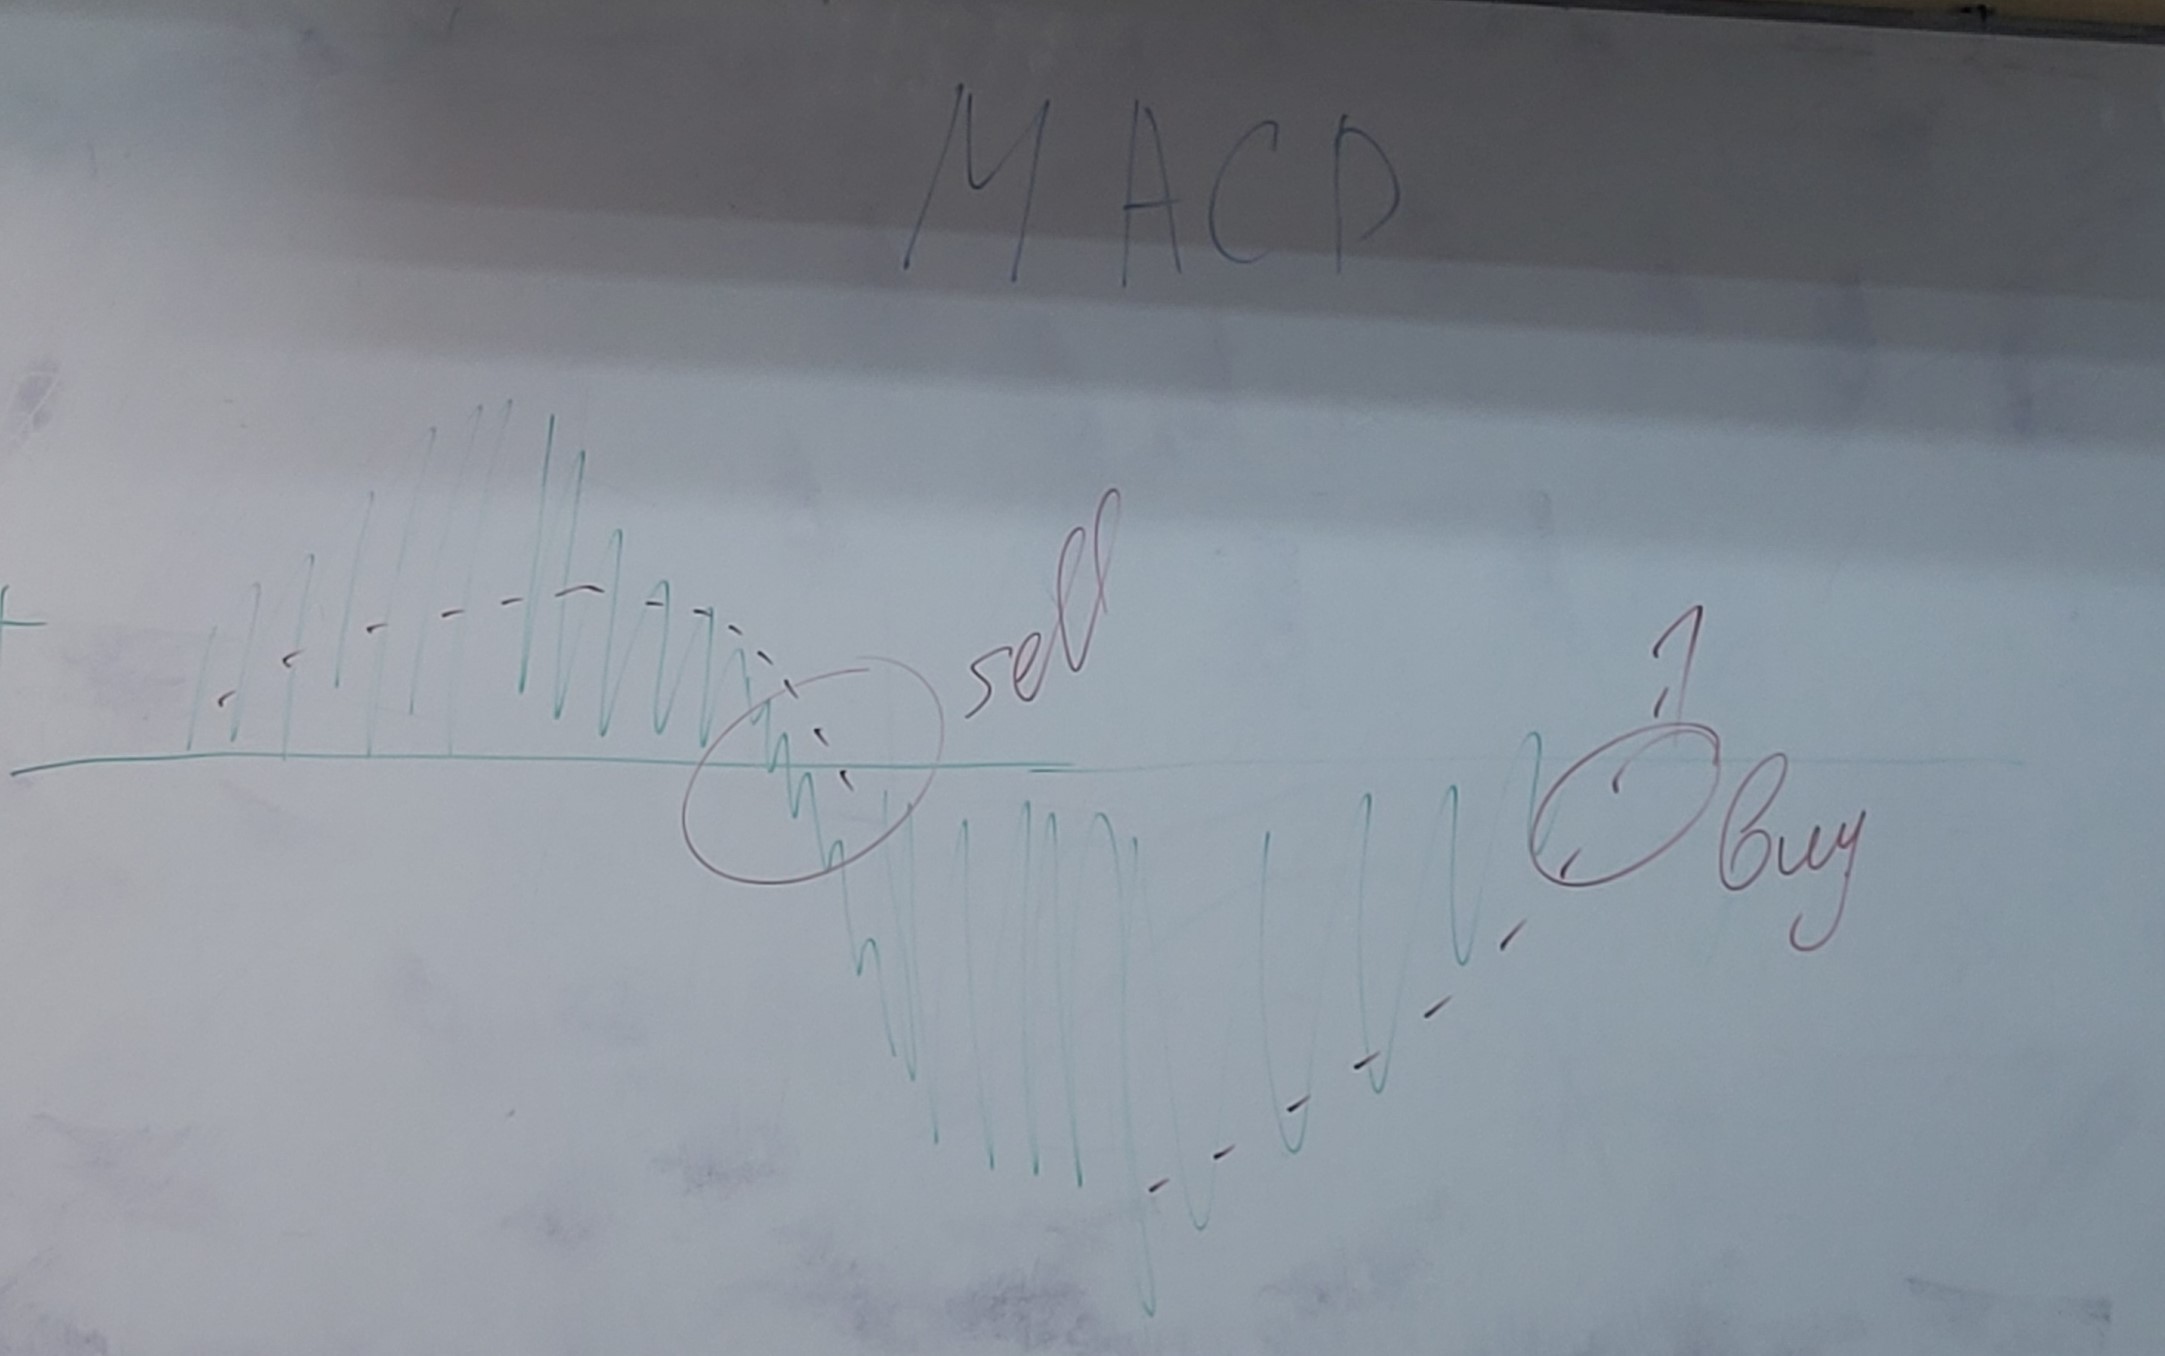 MACD
+
sell
buy